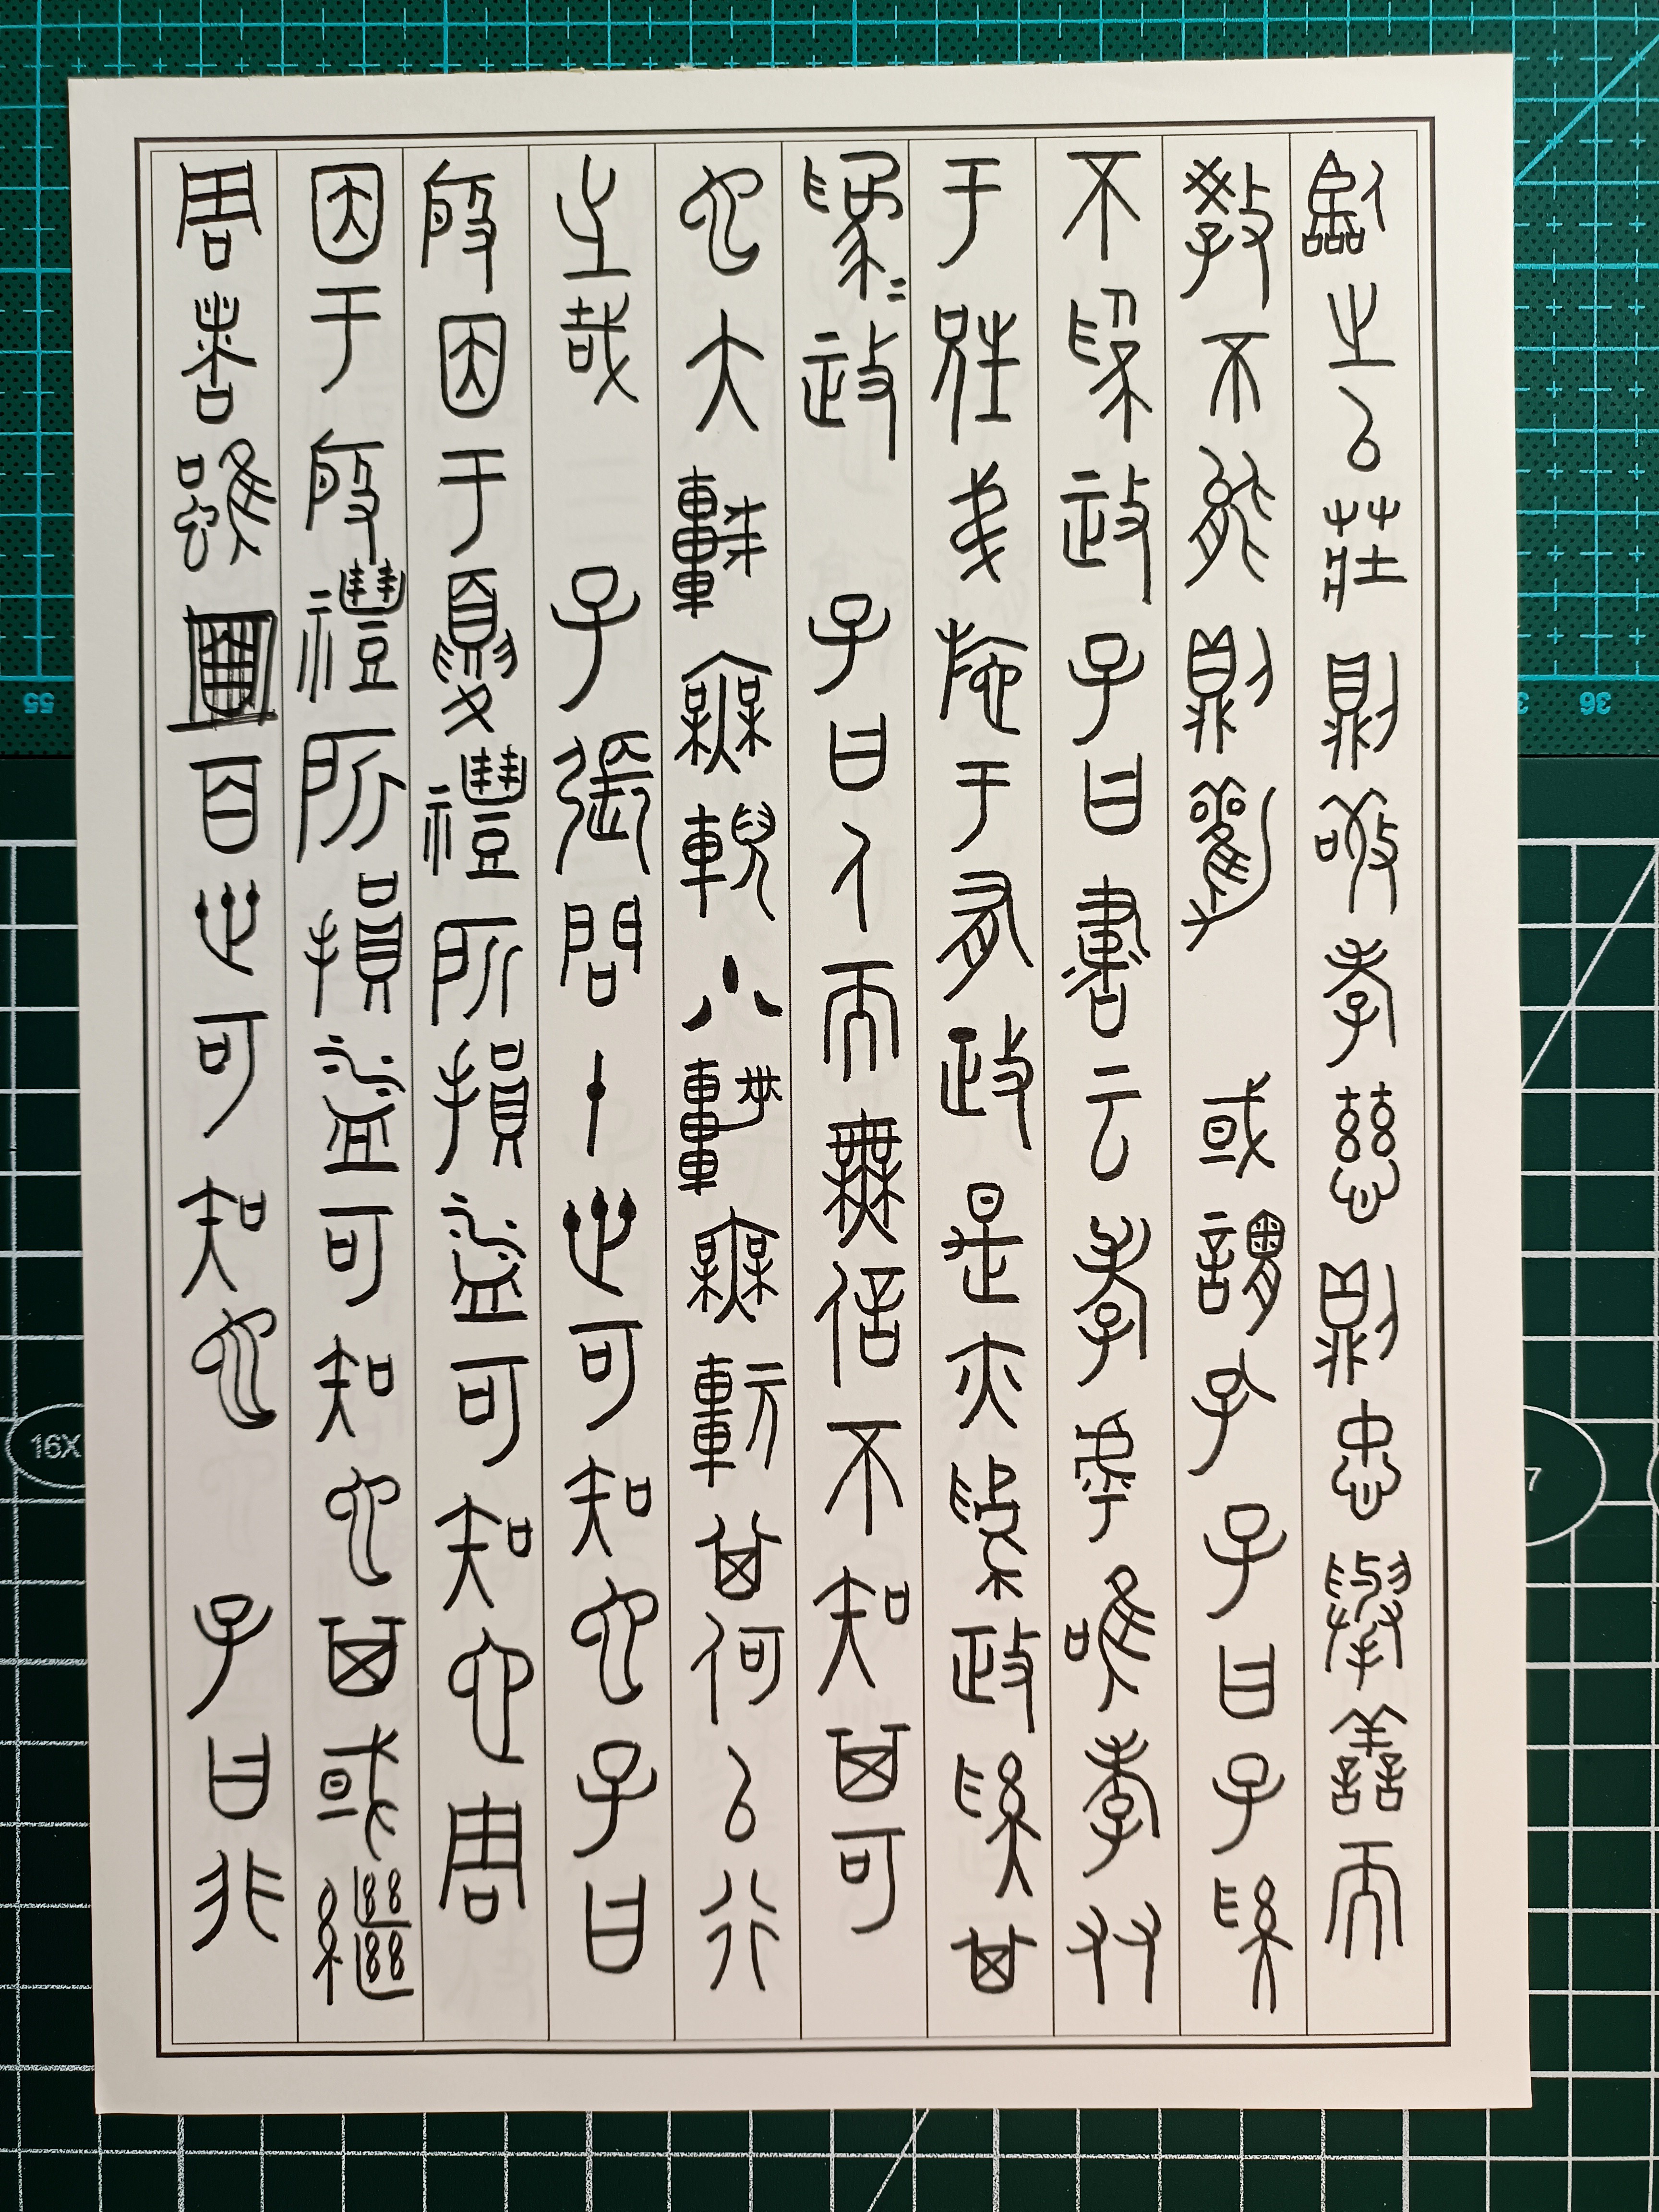 臨之以莊則敬孝慈則忠舉善而
教不能則勸 或謂孔子曰子奚
不為政子曰書云孝乎唯孝友
于兄弟施于有政是亦為政奚其
為=政 子曰人而無信不知其可
也大車無輗小車無軏其何以行
之哉 子張問十世可知也子曰
殷因于夏禮所損益可知也周
因于殷禮所損益可知也其或繼
周者雖百世可知也 子曰非
16X
7
55
36